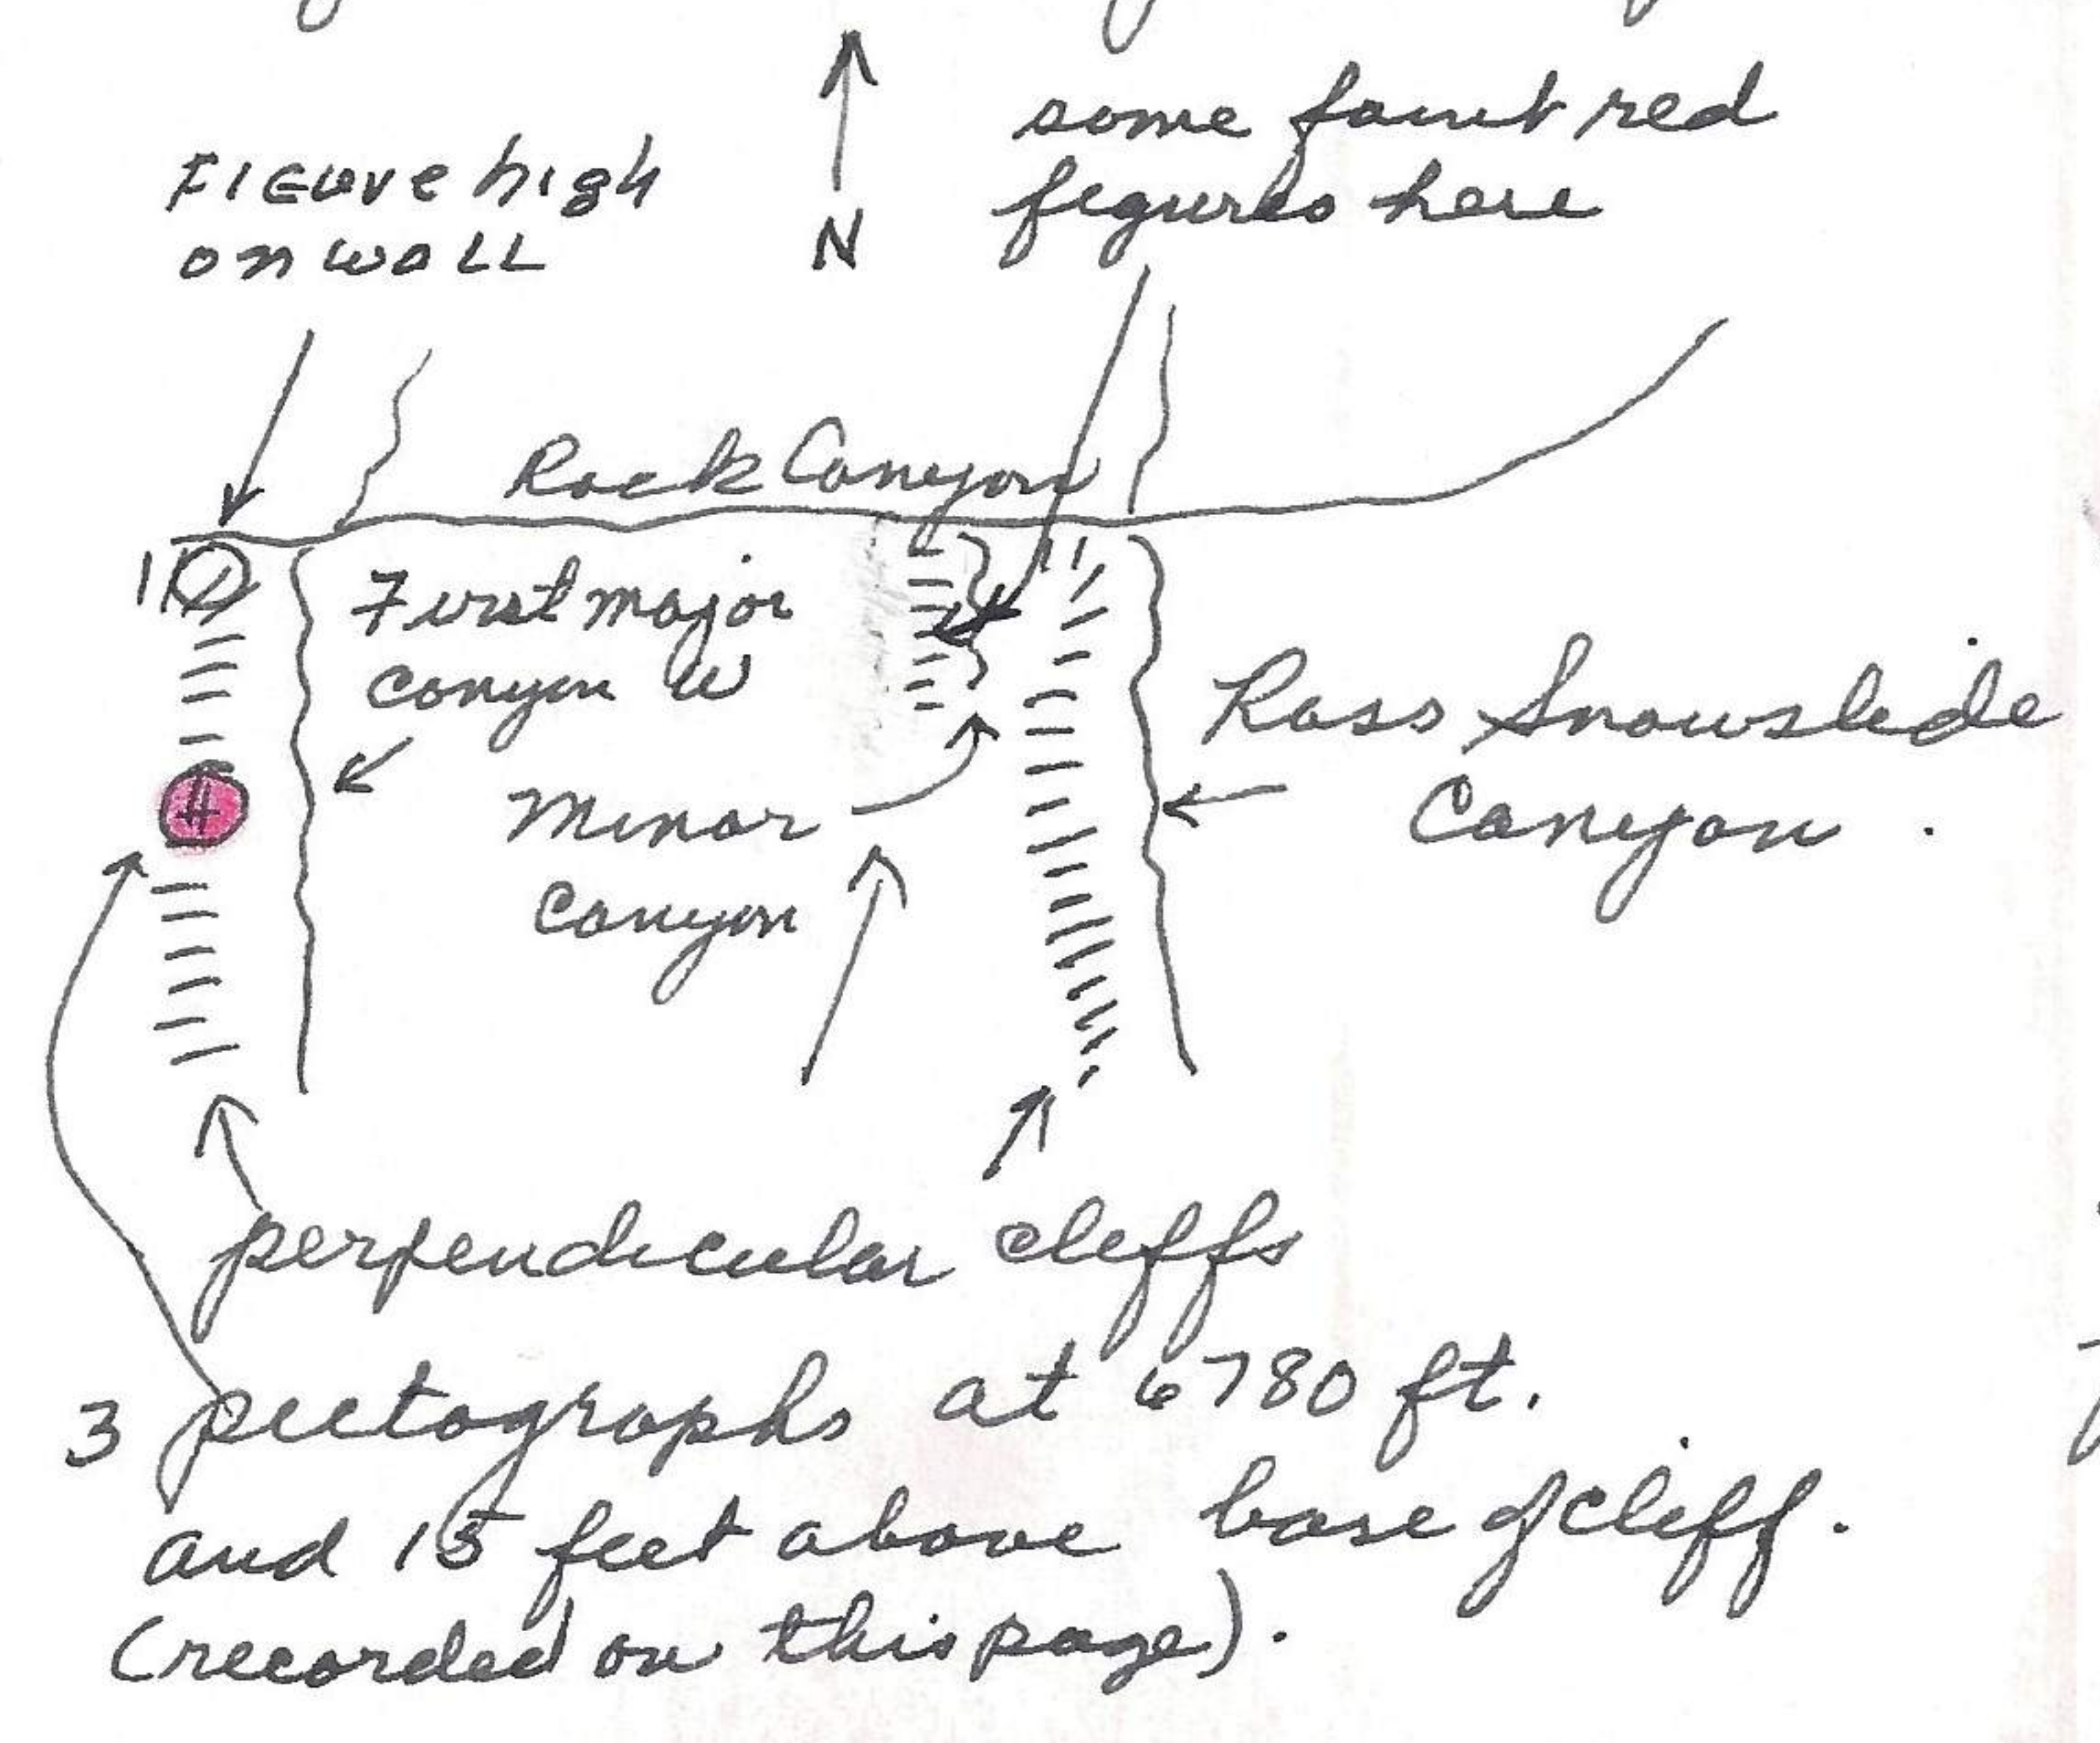 FIGure high
on wall
N
some faint red
figures here
Rock Canyon
First major
canyon W
Minor
Canyon
Ross Snowslide
Canyon.
perpendicular cliffs
3 pictographs at 6780 ft.
and 15 feet above base of cliff.
(recorded on this page).